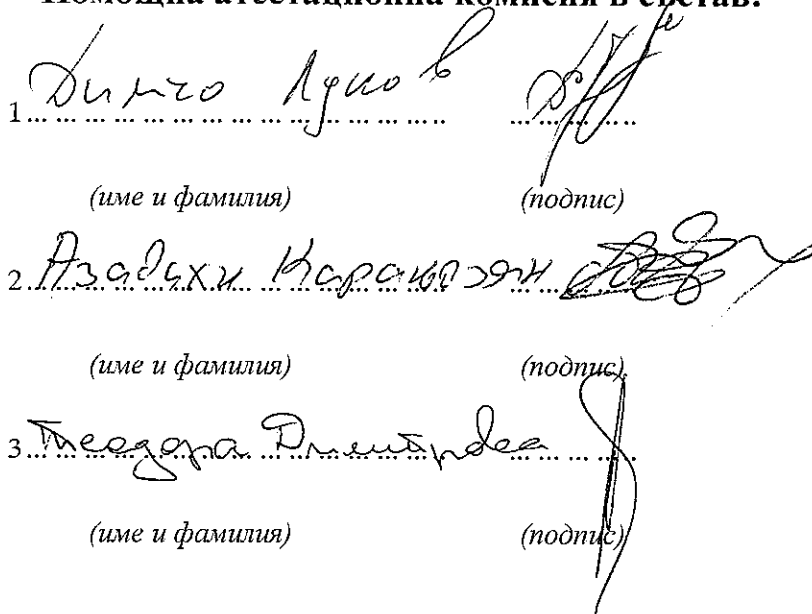 Помощна атестационна комисия в състав:
1 Димчо Луков
(име и фамилия) (подпис)
2. Азадухи
(име и фамилия) (подпис)
3. Теодора Димитрова
(име и фамилия) (подпис)